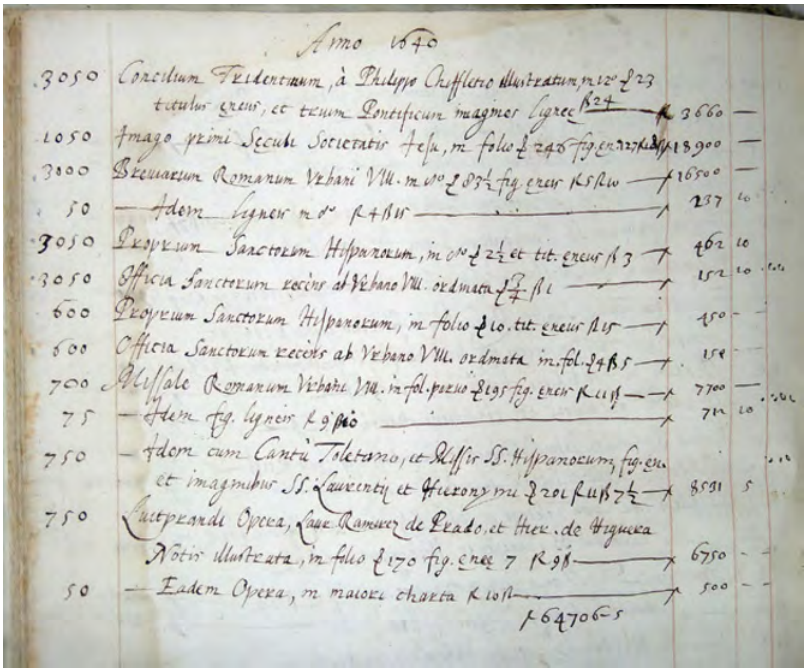 Anno 1640
3050 Concilium Tridentinum, à Philippo Chiffletio illustratum, in 12º 23
titulus eneus, et trium Pontificum imagines lignee ß 24 3660 —
1050 Imago primi Seculi Societatis Jesu, in folio 246 fig. en. 127 18900 —
3000 Breviarium Romanum Urbani VIII. in 8º 83½ fig. eneis R 5 ß 10 — 16500 —
50 — Idem ligneis in 8º R 4 ß 15 — 237 10
3050 Proprium Sanctorum Hispanorum, in 8º 2½ et tit. eneus ß 3 — 462 10
3050 Officia Sanctorum recens ab Urbano VIII. ordinata ¾ ß 1 152 10
600 Proprium Sanctorum Hispanorum, in folio 10. tit. eneus ß 15 — 450 -
600 Officia Sanctorum recens ab Urbano VIII. ordinata in fol. 4 ß 5 — 150 —
700 Missale Romanum Urbani VIII. in fol. parvo 195 fig. eneis R 11 ß — 7700 —
75 — Idem fig. ligneis R 9 ß 10 — 712 10
750 — Idem cum Cantu Toletano, et Missis SS. Hispanorum, fig. en.
et imaginibus SS. Laurentij et Hieronymi 201 R 11 ß 7½ — 8531 5
750 Luitprandi Opera, Laur. Ramirez de Prado, et Hier. de Higuera
Notis illustrata, in folio 170 fig. enee 7 R 9 ß — 6750 —
50 — Eadem Opera, in maiori charta R 10 ß — 500 —
64706-5